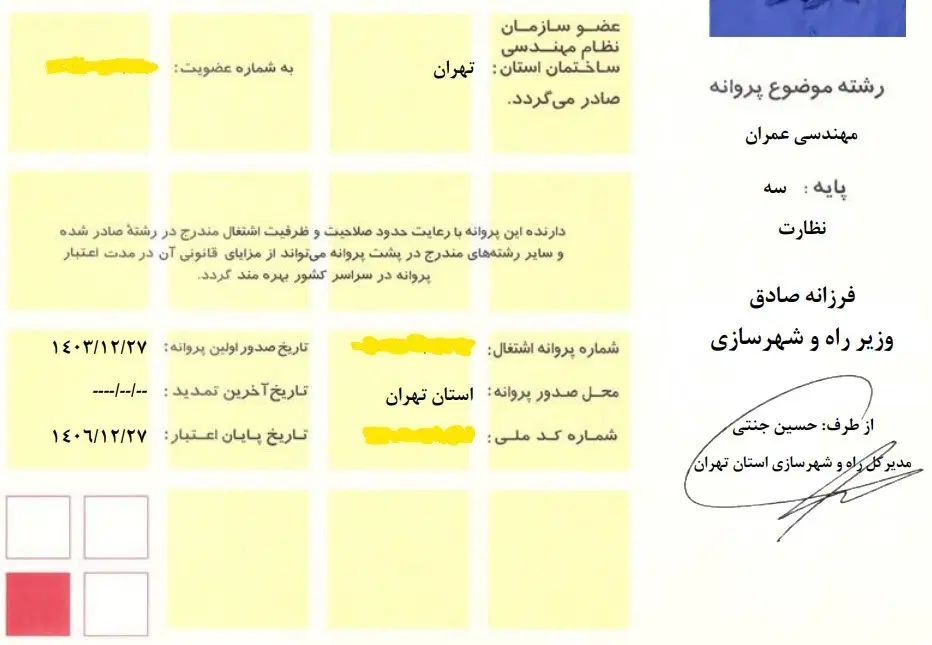 عضو سازمان
نظام مهندسی
ساختمان استان: تهران
به شماره عضویت:
صادر می‌گردد.
رشته موضوع پروانه
مهندسی عمران
پایه: سه
نظارت
دارنده این پروانه با رعایت حدود صلاحیت و ظرفیت اشتغال مندرج در رشتهٔ صادر شده
و سایر رشته‌های مندرج در پشت پروانه می‌تواند از مزایای قانونی آن در مدت اعتبار
پروانه در سراسر کشور بهره مند گردد.
فرزانه صادق
وزیر راه و شهرسازی
شماره پروانه اشتغال:
تاریخ صدور اولین پروانه: ۱۴۰۳/۱۲/۲۷
محل صدور پروانه: استان تهران
تاریخ آخرین تمدید: --/--/----
شماره کد ملی:
تاریخ پایان اعتبار: ۱۴۰۶/۱۲/۲۷
از طرف: حسین جنتی
مدیرکل راه و شهرسازی استان تهران